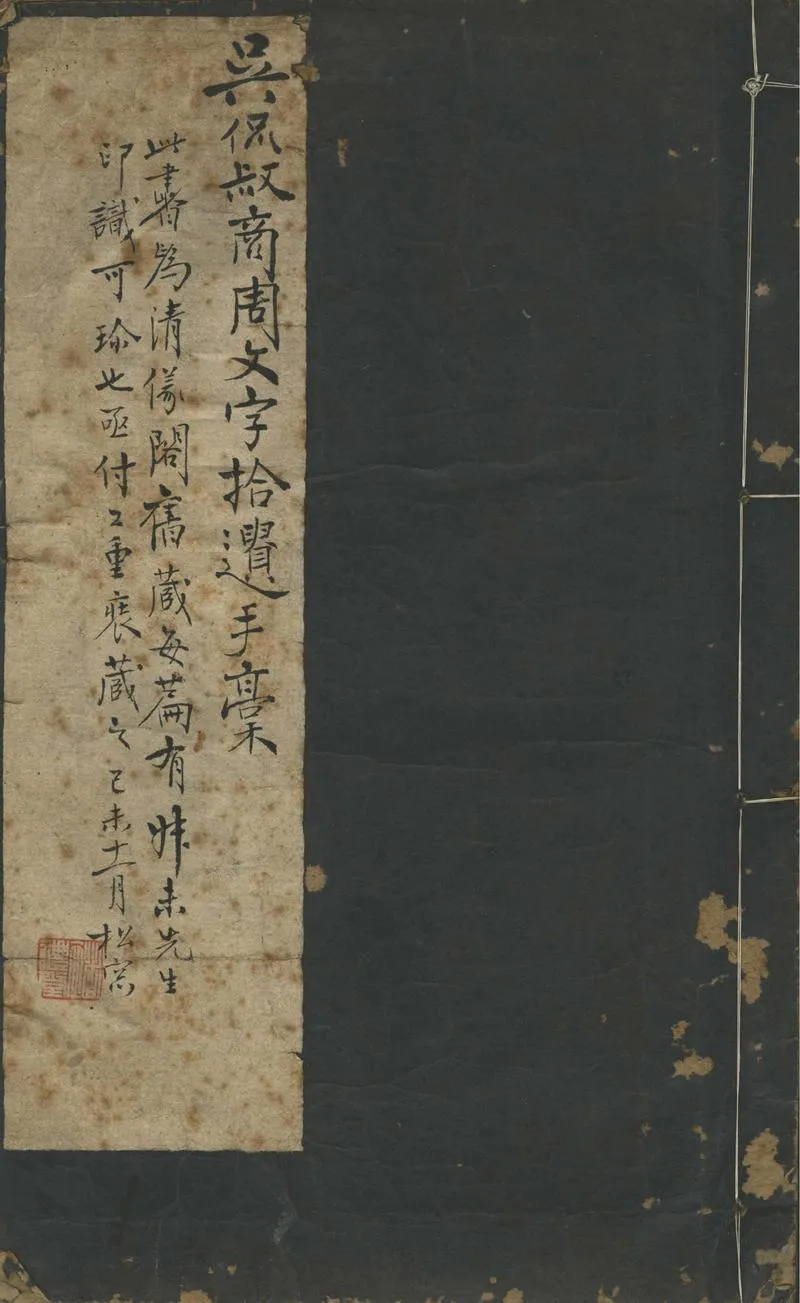 吳侃叔商周文字拾遺手稾
此書爲清儀閣舊藏每篇有叔未先生
印識可珍也亟付工重裝藏之己未十一月松窗